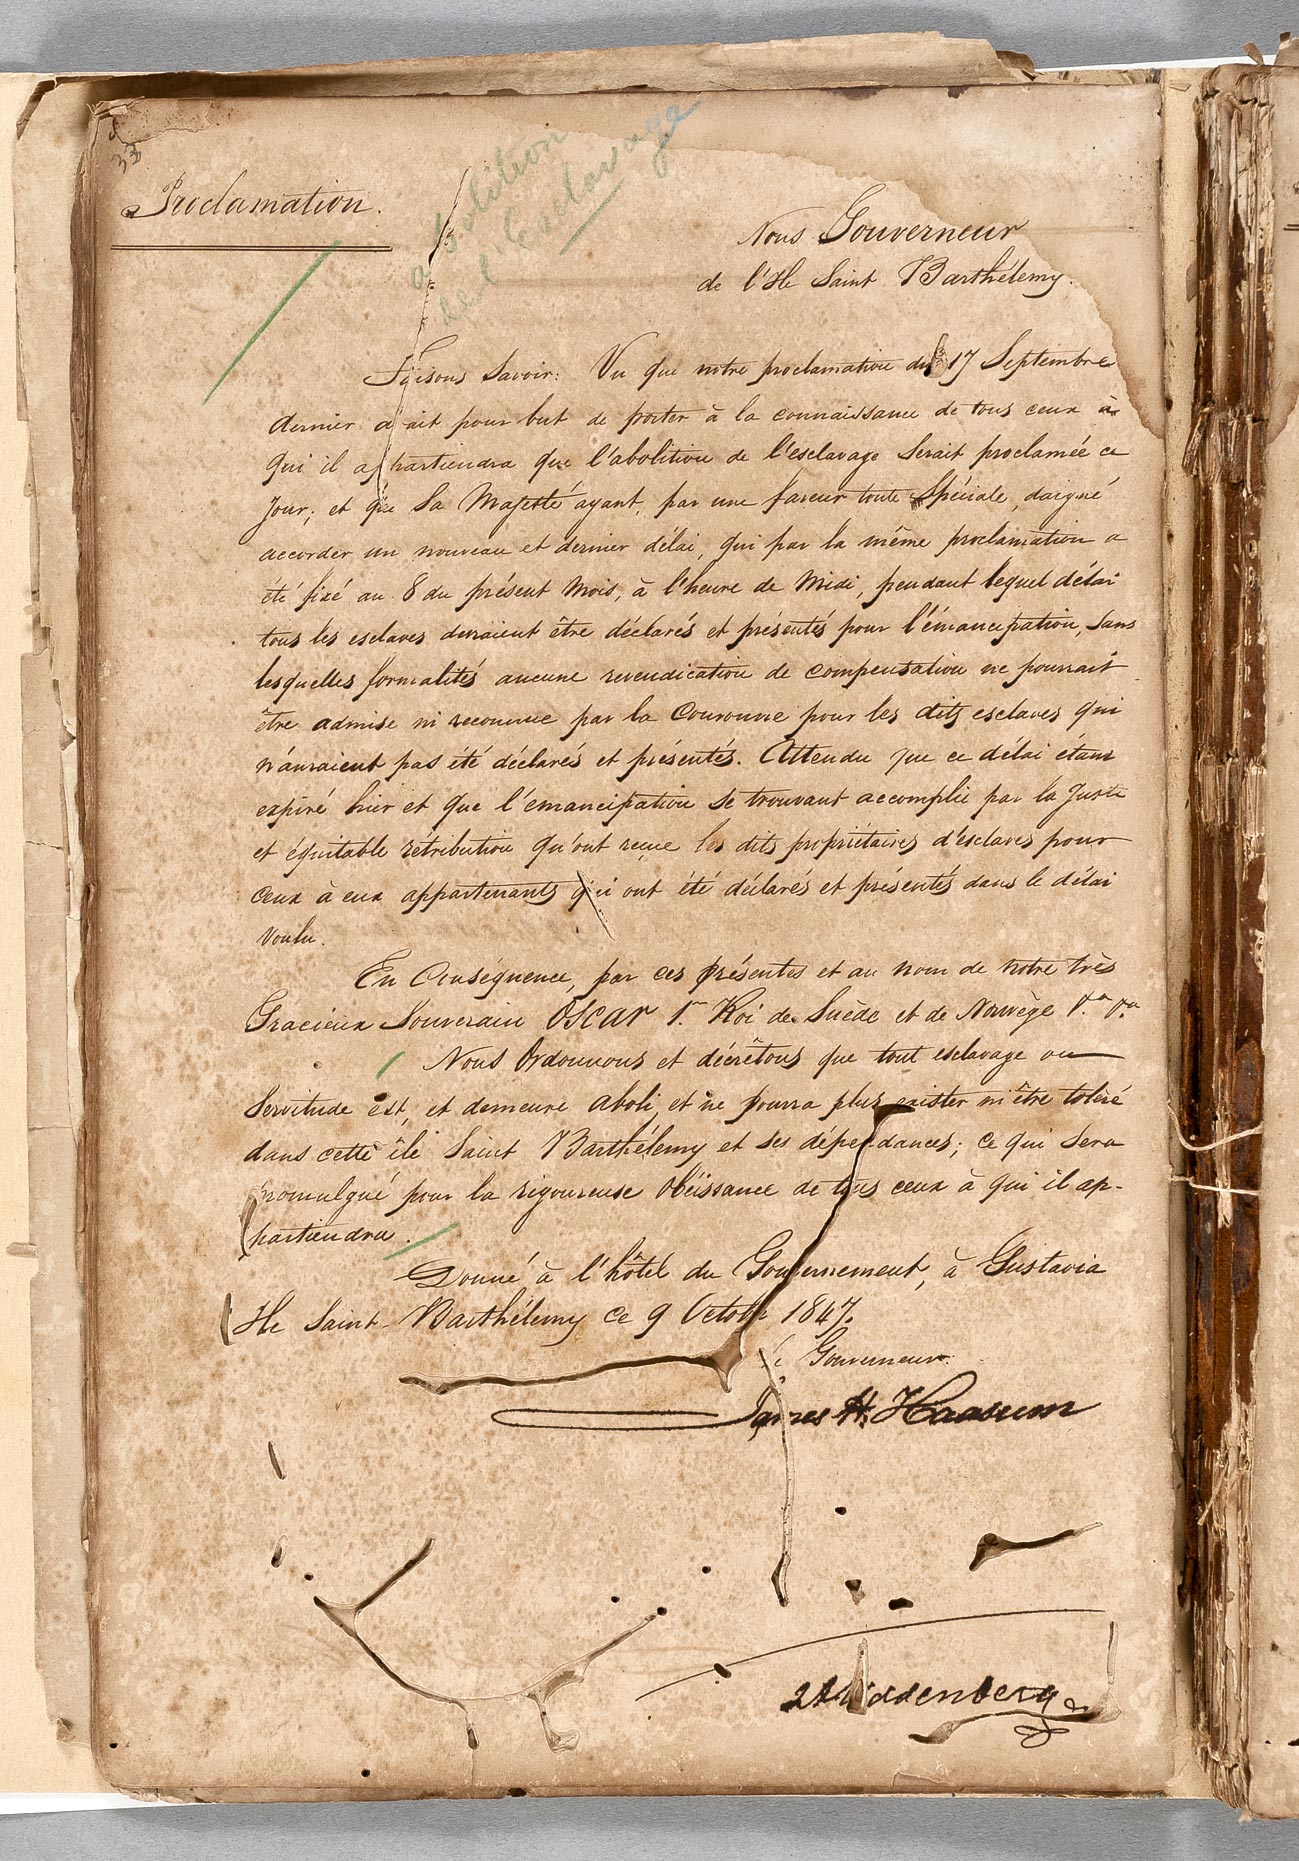 33
abolition
de l'Esclavage
Proclamation.
Nous Gouverneur
de l'Ile Saint Barthélemy.
Faisons Savoir: Vu que notre proclamation du 17 Septembre
dernier avait pour but de porter à la connaissance de tous ceux à
qui il appartiendra que l'abolition de l'esclavage serait proclamée ce
jour; et que Sa Majesté ayant, par une faveur toute spéciale, daigné
accorder un nouveau et dernier délai, qui par la même proclamation a
été fixé au 8 du présent mois, à l'heure de Midi, pendant lequel délai
tous les esclaves devraient être déclarés et présentés pour l'émancipation, sans
lesquelles formalités aucune revendication de compensation ne pourrait
être admise ni reconnue par la Couronne pour les dits esclaves qui
n'auraient pas été déclarés et présentés. Attendu que ce délai étant
expiré hier et que l'émancipation se trouvant accomplie par la juste
et équitable rétribution qu'ont reçue les dits propriétaires d'esclaves pour
ceux à eux appartenants qui ont été déclarés et présentés dans le délai
voulu.
En Conséquence, par ces présentes et au nom de notre très
Gracieux Souverain OSCAR 1.er Roi de Suède et de Norwège
Nous Ordonnons et décrêtons que tout esclavage ou
Servitude est, et demeure aboli, et ne pourra plus exister ni être toléré
dans cette île Saint Barthélemy et ses dépendances; ce qui sera
promulgué pour la rigoureuse obéissance de tous ceux à qui il ap-
partiendra.
Donné à l'hôtel du Gouvernement, à Gustavia
Ile Saint-Barthélemy ce 9 Octobre 1847.
Le Gouverneur.
James H. Haasum